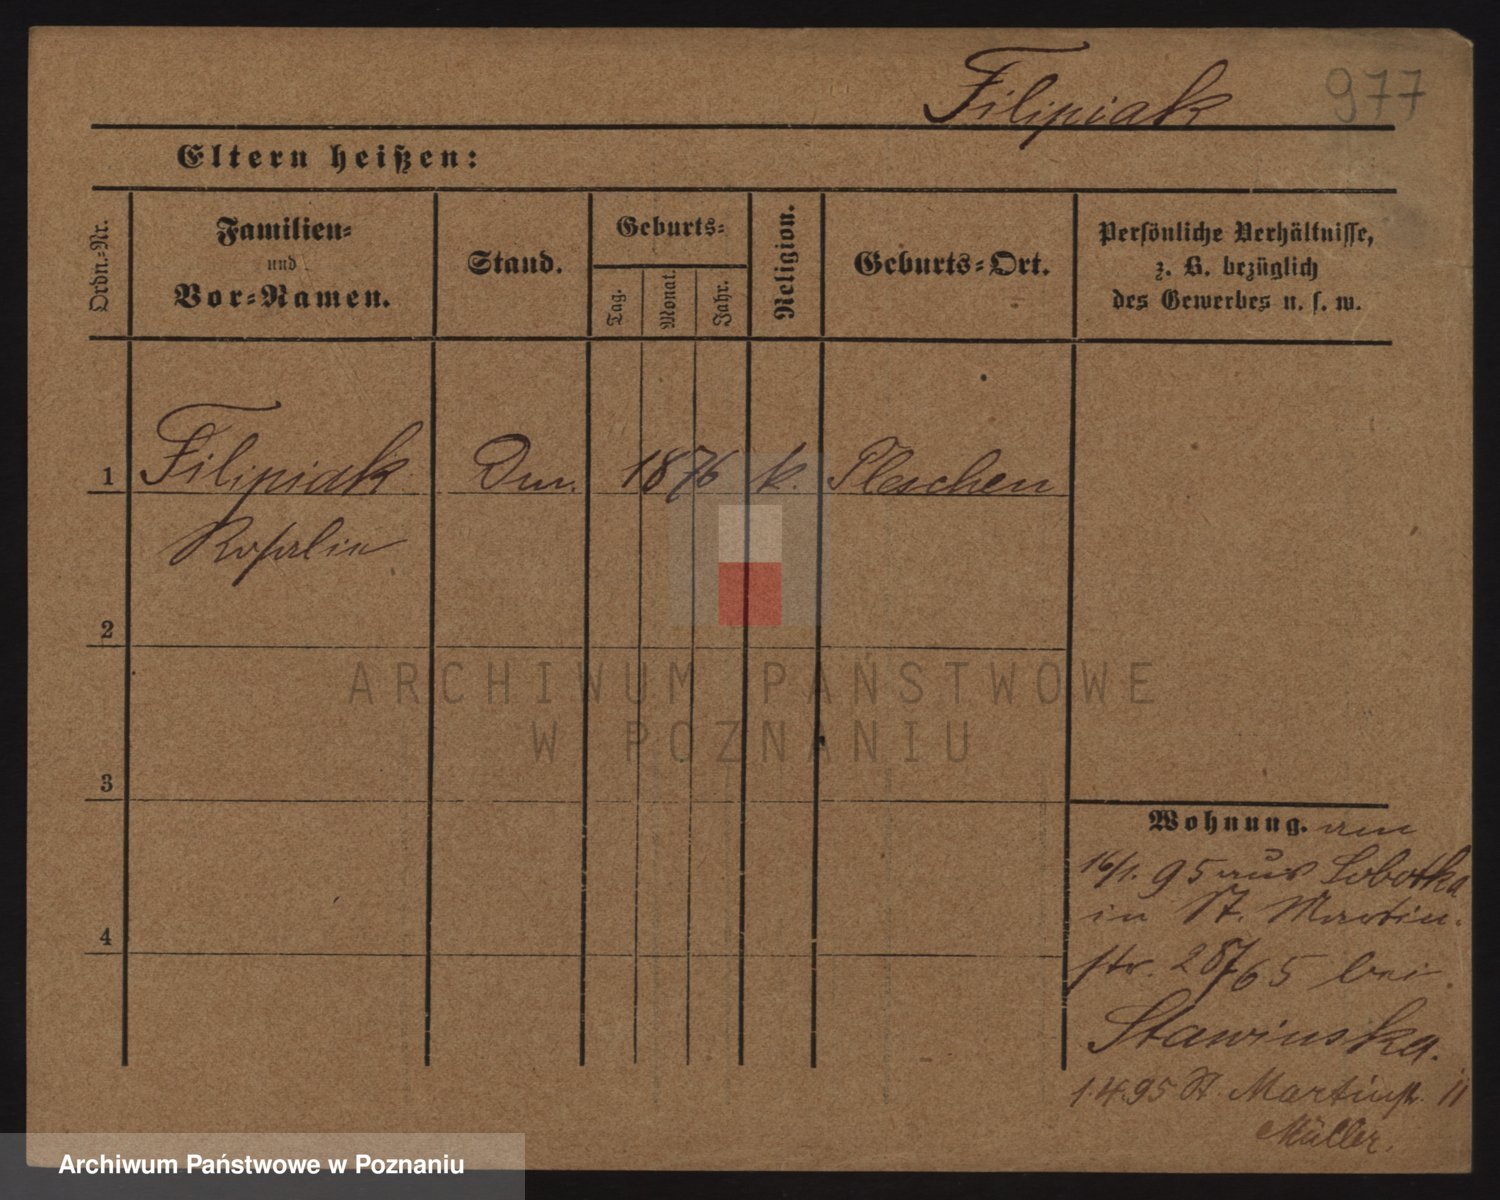 Filipiak 977
Eltern heißen:
Ordn.-Nr.
Familien-
und
Vor-Namen.
Stand.
Geburts-
Tag.
Monat.
Jahr.
Religion.
Geburts-Ort.
Persönliche Verhältnisse,
z. B. bezüglich
des Gewerbes u. s. w.
1 Filipiak 1876 k. Pleschen
Rosalie
2
3
4
Wohnung. am
16/1. 95 aus Sobotka
in St. Martin-
str. 28/65 bei
Stawinska.
1.4.95 St. Martinstr. 11
Müller.
ARCHIWUM PAŃSTWOWE
W POZNANIU
Archiwum Państwowe w Poznaniu